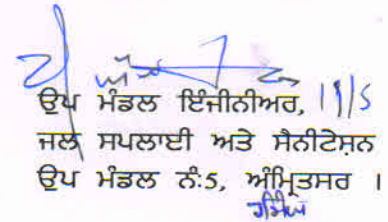 ਉਪ ਮੰਡਲ ਇੰਜੀਨੀਅਰ, 19/5
ਜਲ ਸਪਲਾਈ ਅਤੇ ਸੈਨੀਟੇਸ਼ਨ
ਉਪ ਮੰਡਲ ਨੰ:5, ਅੰਮ੍ਰਿਤਸਰ ।